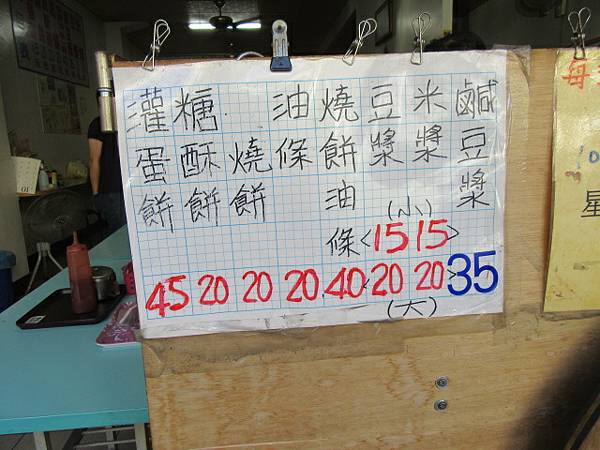 鹹豆漿
米漿
豆漿
燒餅油條
油條
燒餅
糖酥餅
灌蛋餅
(小)
<15 15>
45 20 20 20 40 <20 20> 35
(大)
母
星